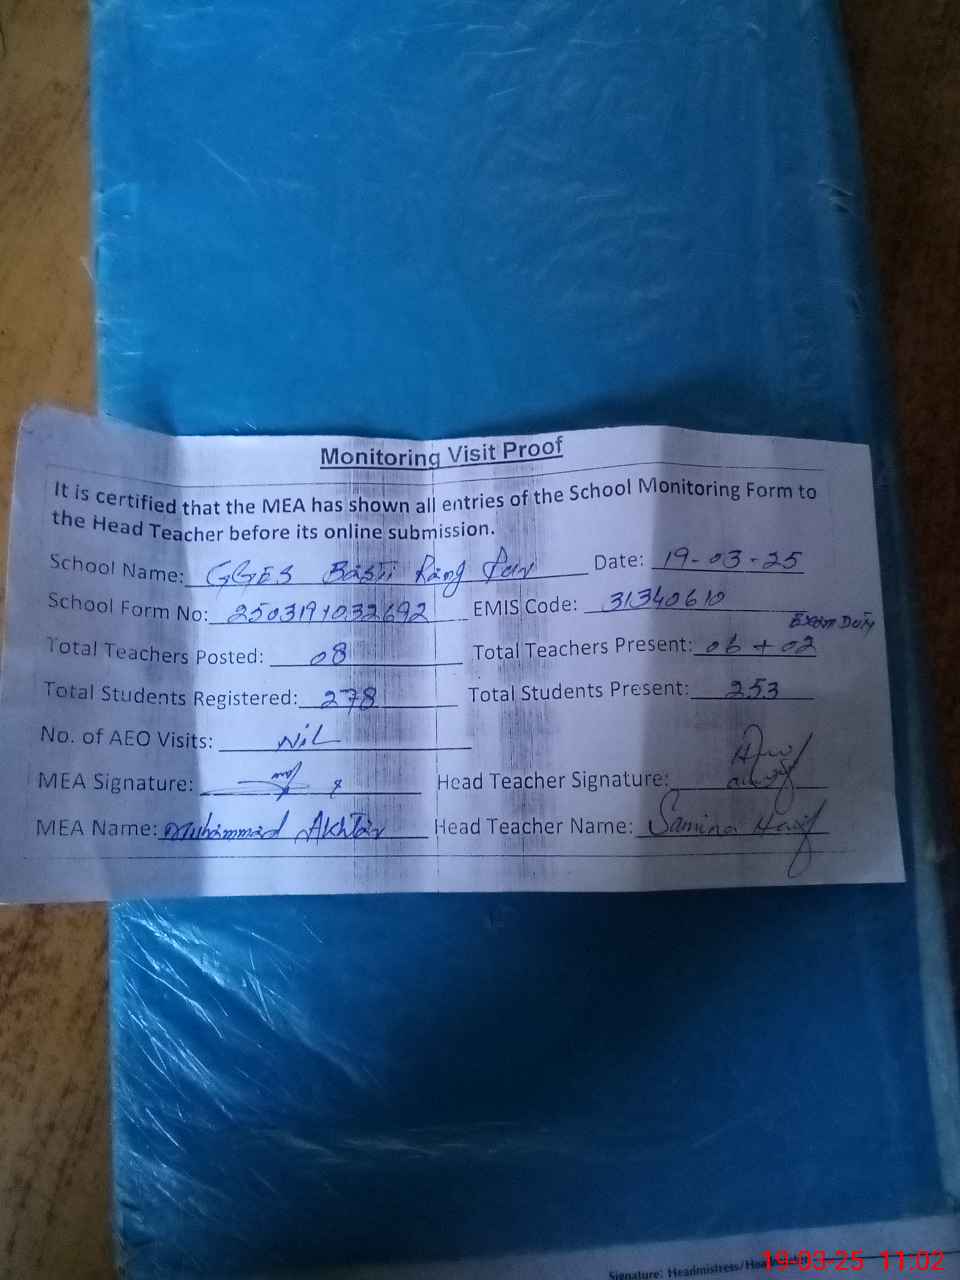 Monitoring Visit Proof
It is certified that the MEA has shown all entries of the School Monitoring Form to
the Head Teacher before its online submission.
School Name: GGES Basti Rang Pur Date: 19-03-25
School Form No: 2503191032692 EMIS Code: 31340610
Exam Duty
Total Teachers Posted: 08 Total Teachers Present: 06 + 02
Total Students Registered: 278 Total Students Present: 253
No. of AEO Visits: NiL
MEA Signature: Head Teacher Signature:
MEA Name: Muhammad Akhtar Head Teacher Name: Samina
Signature: Headmistress/
19-03-25 11:02